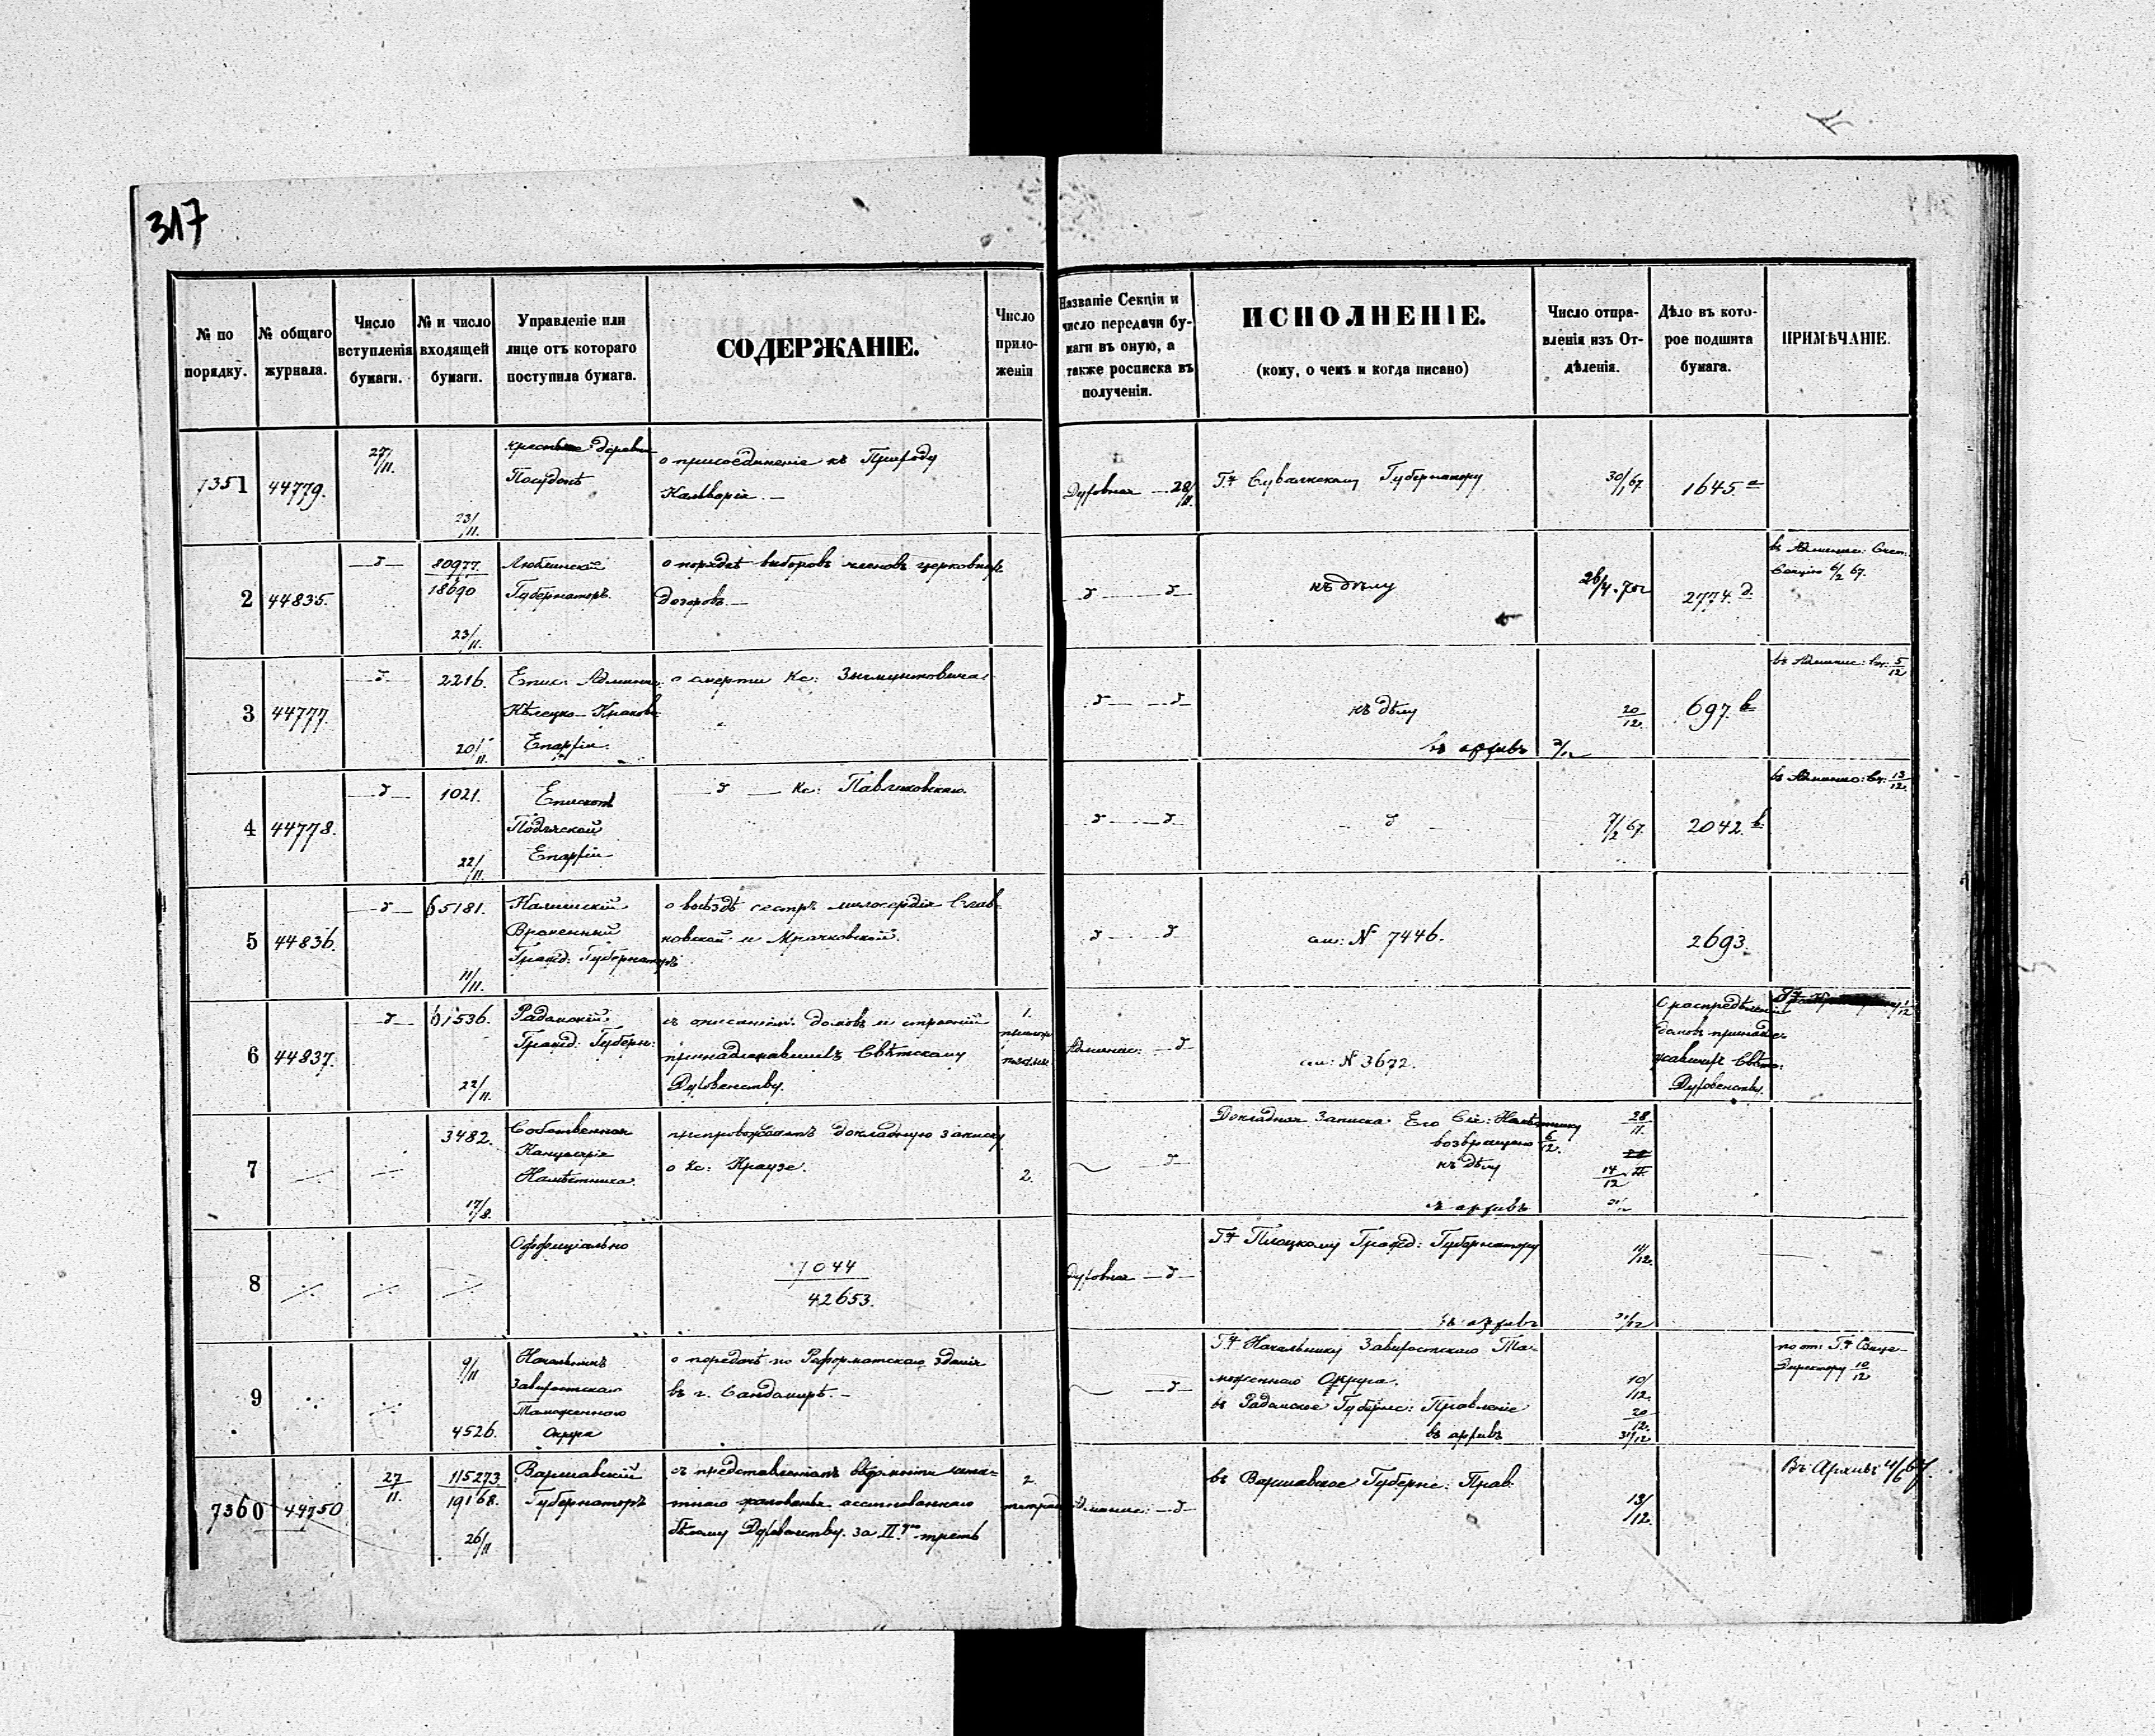 317
№ по порядку.
№ общаго журнала.
Число вступленія бумаги.
№ и число входящей бумаги.
Управленіе или лице отъ котораго поступила бумага.
СОДЕРЖАНІЕ.
Число приложеній
Названіе Секціи и число передачи бумаги въ оную, а также росписка въ полученіи.
ИСПОЛНЕНІЕ.
(кому, о чемъ и когда писано)
Число отправленія изъ Отдѣленія.
Дѣло въ которое подшита бумага.
ПРИМѢЧАНІЕ.
7351
44779.
27/11.
23/11.
о присоединеніе къ Приходу
Кальварія.—
Духовная — 28/11.
Гну Сувалкскому Губернатору
30/1 67
1645.а
2
44835.
—д—
80977.
18690
23/11.
Люблинскій
Губернаторъ.
о порядкѣ выборовъ членовъ церковныхъ
дозоровъ.—
—д— —д—
къ дѣлу
2774.д.
6/2 67.
3
44777.
—д—
2216.
20/11.
Епис. Админ.
Кѣлецко-Краков.
Епархіи.
о смерти Кс: Зыгмунтовича
—д— —д—
къ дѣлу
въ архивъ
20/12.
697.в
5/12
4
44778.
—д—
1021.
22/11.
Епископъ
Епархіи
—д— Кс: Павликовскаго.
—д— —д—
—д—
7/2 67.
2042.в.
13/12.
5
44836.
—д—
65181.
11/11.
Калишскій
Временный
Гражд: Губернаторъ
о выѣздѣ сестръ милосердія
и Мрачковской.
—д— —д—
см: № 7446.
2693.
6
44837.
—д—
61536.
22/11.
Радомскій
Гражд: Губерн:
съ описаніемъ домовъ и строеній
принадлежавшихъ Свѣтскому
Духовенству.
1.
Админис: —д—
см: № 3672.
О распредѣленіи
домовъ принадле-
жавшихъ Свѣтс:
Духовенству.
7
3482.
17/8.
Собственная
Канцелярія
Намѣстника.
препровождаетъ докладную записку
о Кс: Краузе.
2.
—д—
Докладная Записка Его Сіят: Намѣстнику
возвращено 6/12.
къ дѣлу
въ архивъ
28/11.
14/12
8
Оффиціально
7044
42653.
Духовная —д—
Гну Плоцкому Гражд: Губернатору
въ архивъ
11/12.
31/12
9
9/11
4526.
Начальникъ
Завихостскаго
Таможеннаго
Округа
о передачѣ по Реформатскаго зданія
въ г. Сандомирѣ.—
—д—
Гну Начальнику Завихостскаго Та-
моженнаго Округа.
въ Радомское Губернс: Правленіе
въ архивъ
10/12.
20/12.
31/12
Директору 10/12
7360
44750
27/11.
115273.
19168.
26/11
Варшавскій
Губернаторъ
съ представленіемъ вѣдомости
жалованья ассигнованнаго
бѣлому Духовенству за II треть
2
Админис: —д—
въ Варшавское Губернс: Прав:
13/12.
Въ Архивъ